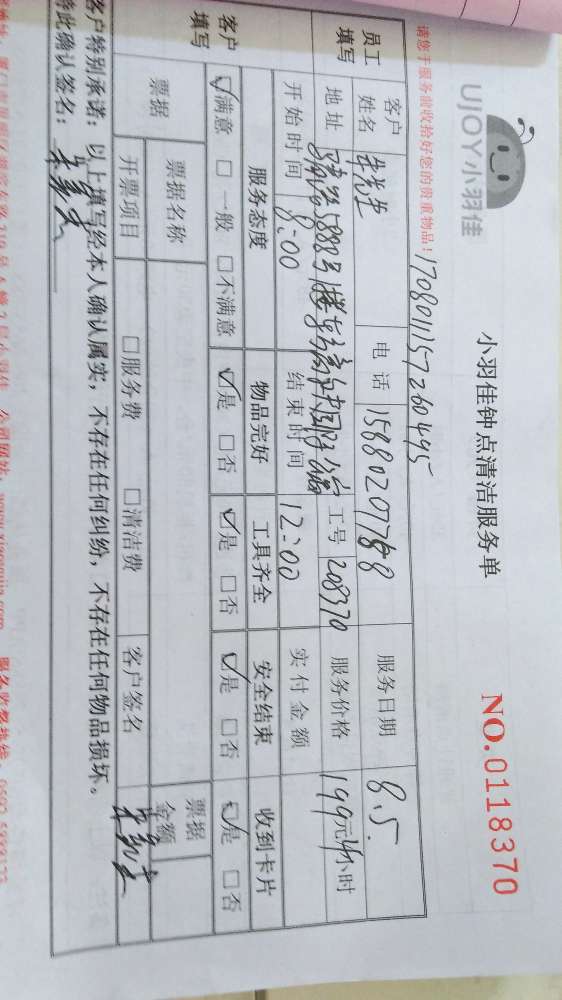 UJOY小羽佳
小羽佳钟点清洁服务单
NO.0118370
请您于服务前收拾好您的贵重物品!
170801157260495
员工填写
客户姓名
电话 15880207788
服务日期 8.5.
地址
工号 208370
服务价格 199元4小时
开始时间 8:00
结束时间 12:00
实付金额
客户填写
服务态度 物品完好 工具齐全 安全结束 收到卡片
☑满意 □一般 □不满意 ☑是 □否 ☑是 □否 ☑是 □否 ☑是 □否
票据
票据名称
票据金额
开票项目 □服务费 □清洁费 客户签名
客户特别承诺:以上填写经本人确认属实,不存在任何纠纷,不存在任何物品损坏。
特此确认签名: